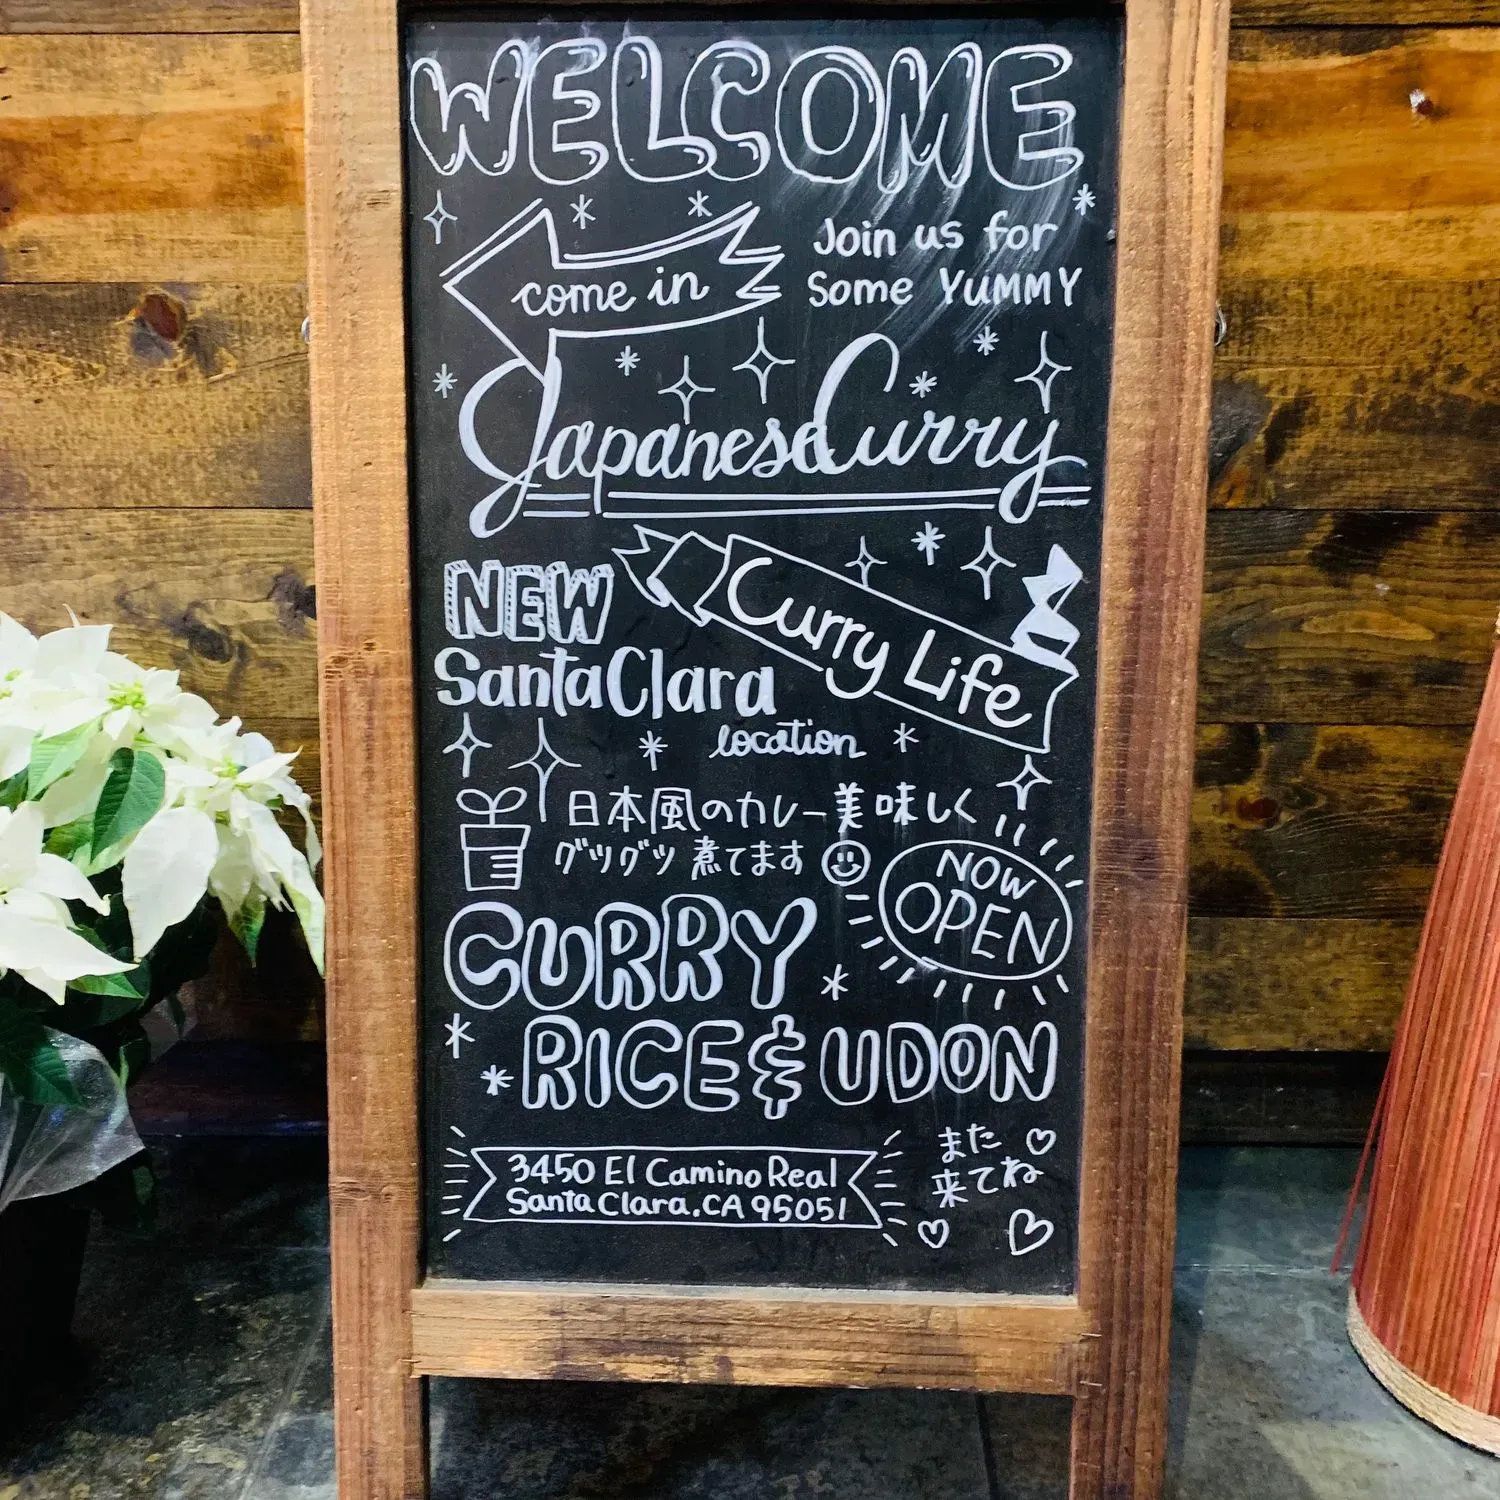 WELCOME
come in
Join us for
Some YUMMY
Japanese Curry
NEW
Santa Clara
location
Curry Life
日本風のカレー美味しく
グツグツ煮てます
NOW
OPEN
CURRY
RICE & UDON
3450 El Camino Real
Santa Clara. CA 95051
また
来てね